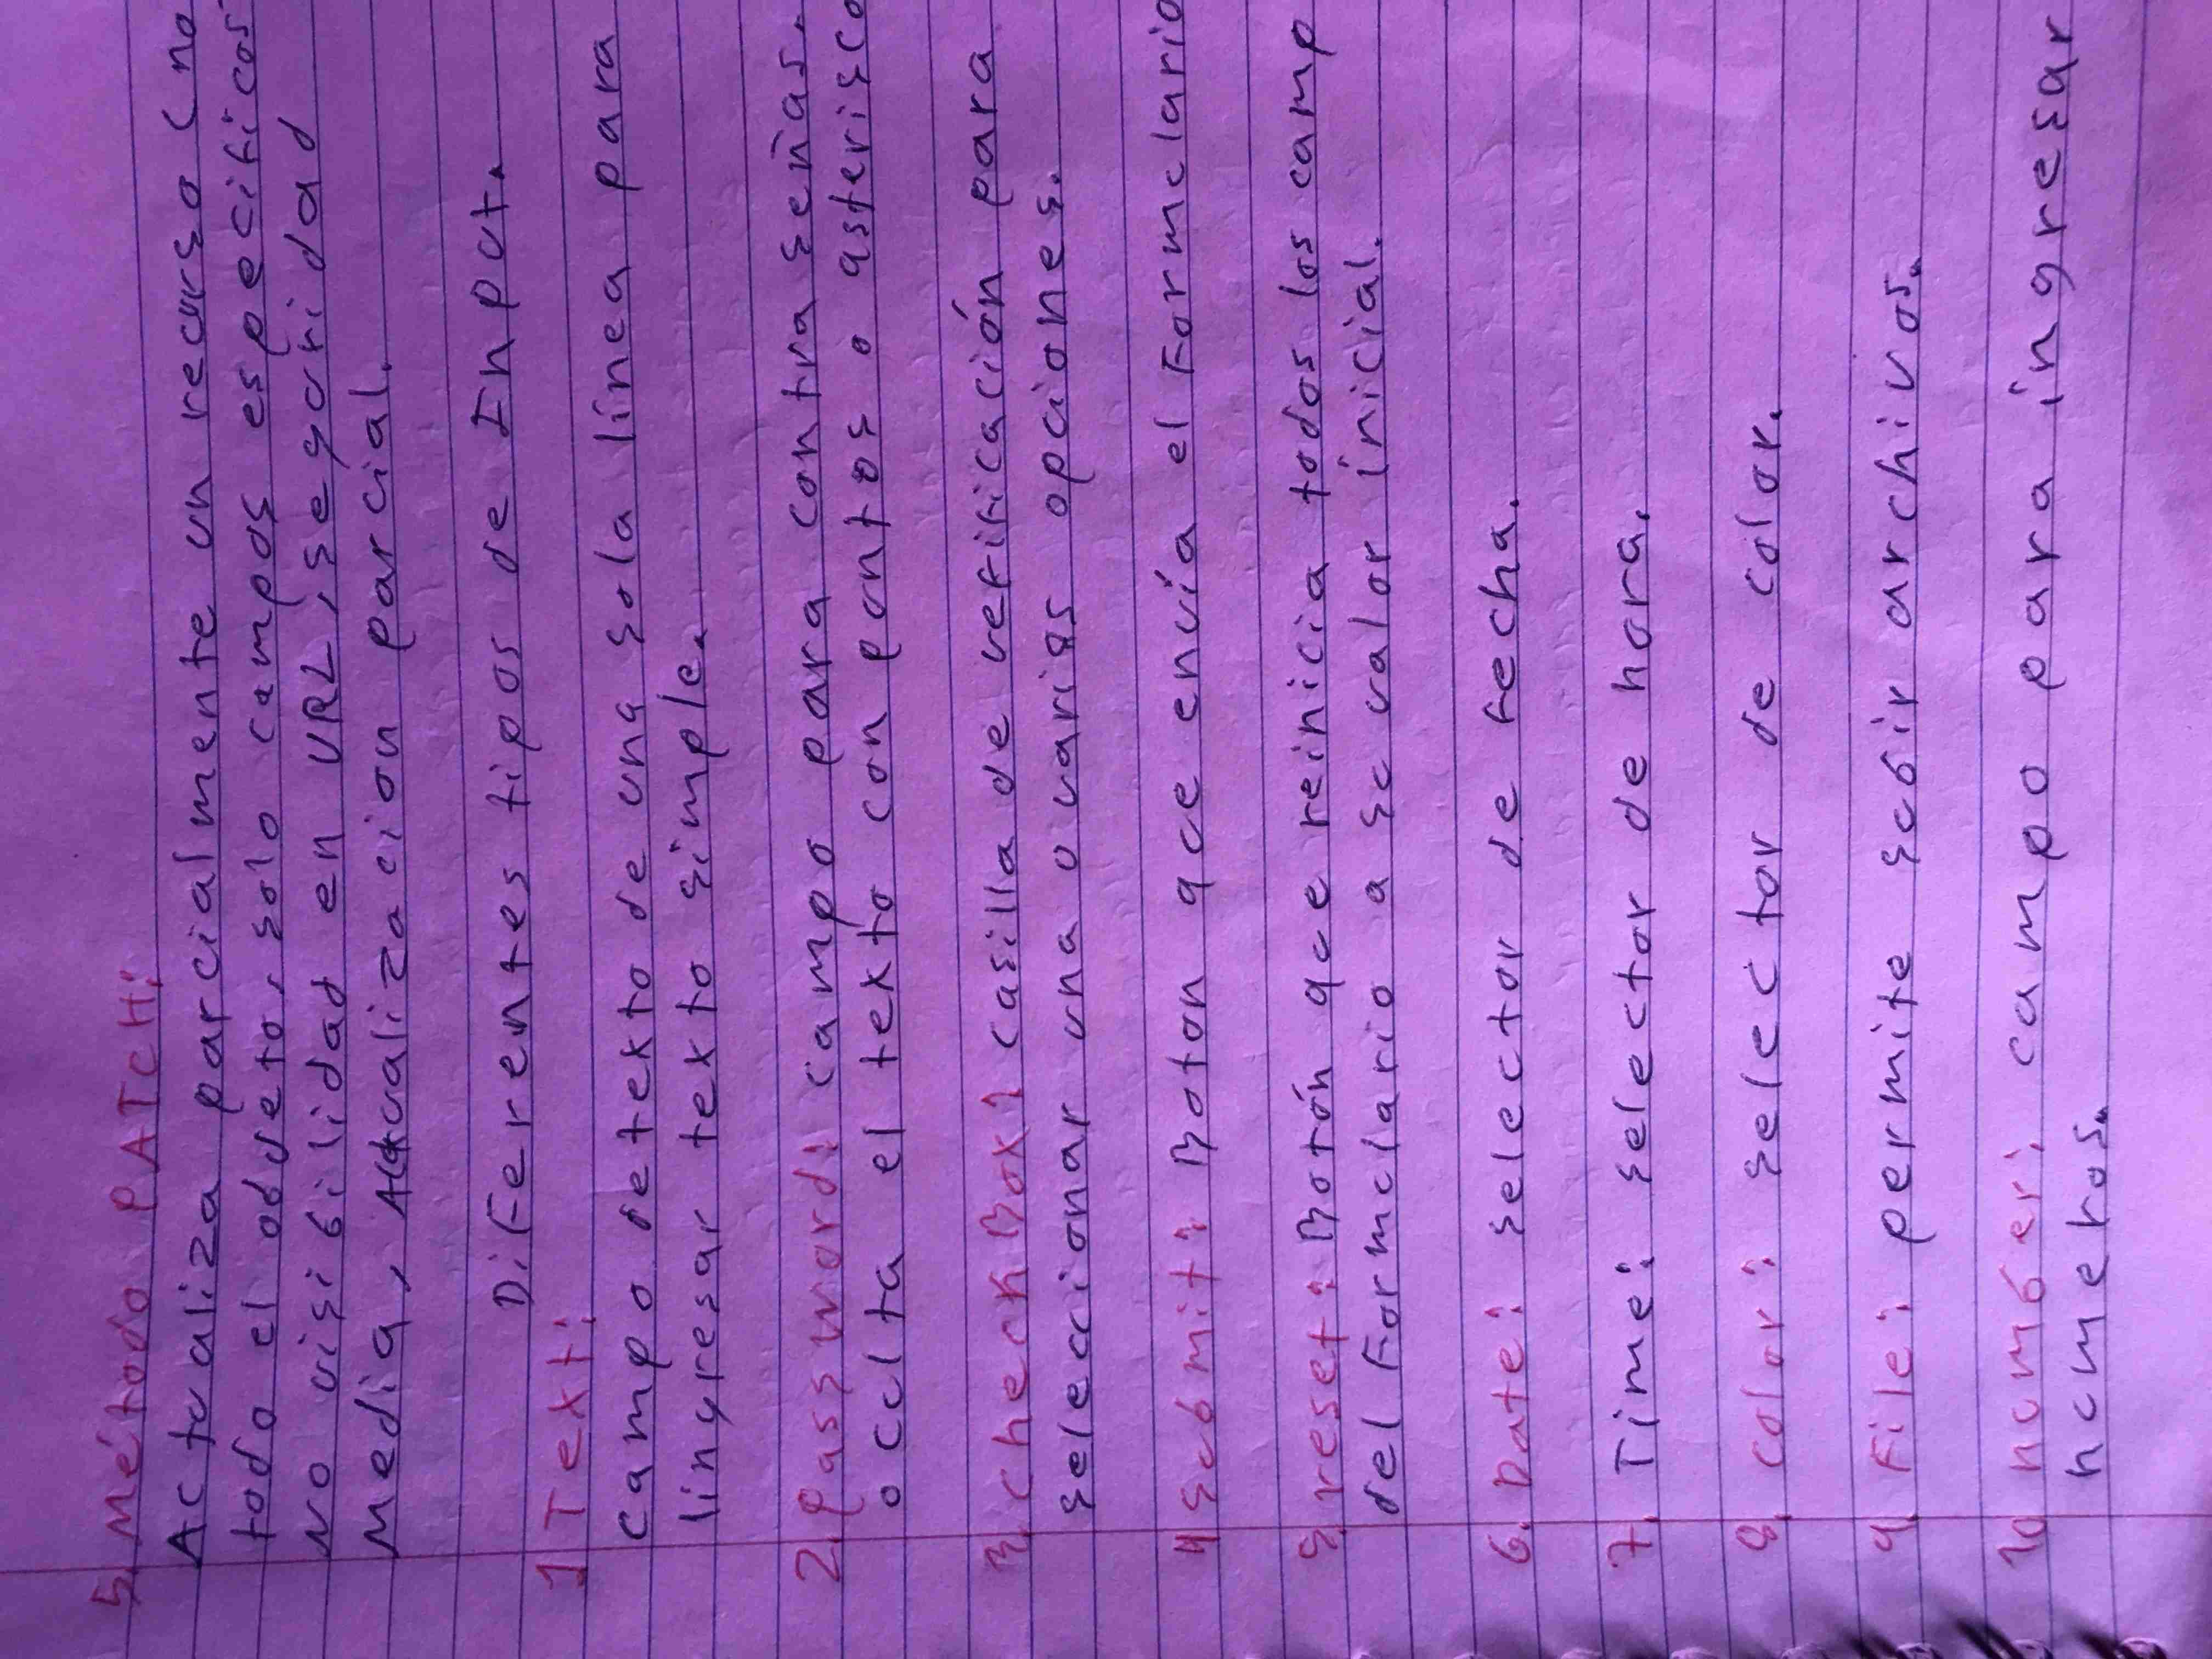 5. Método PATCH:
Actualiza parcialmente un recurso (no
todo el objeto, solo campos especificos
No visibilidad en URL, seguridad
Media, Actualizacion parcial.
Diferentes tipos de Input.
1 Text:
campo de texto de una sola línea para
lingresar texto simple.
2. Password: campo para contraseñas.
oculta el texto con puntos o asterisco
3. checkBox: casilla de verificación para
seleccionar una o varias opciones.
4 submit: Boton que envía el Formulario
5. reset: Botón que reinicia todos los camp
del Formulario a su valor inicial.
6. Date: selector de fecha.
7. Time: selector de hora.
8. color: selector de color.
9. File: permite subir archivos.
10 number: campo para ingresar
numeros.